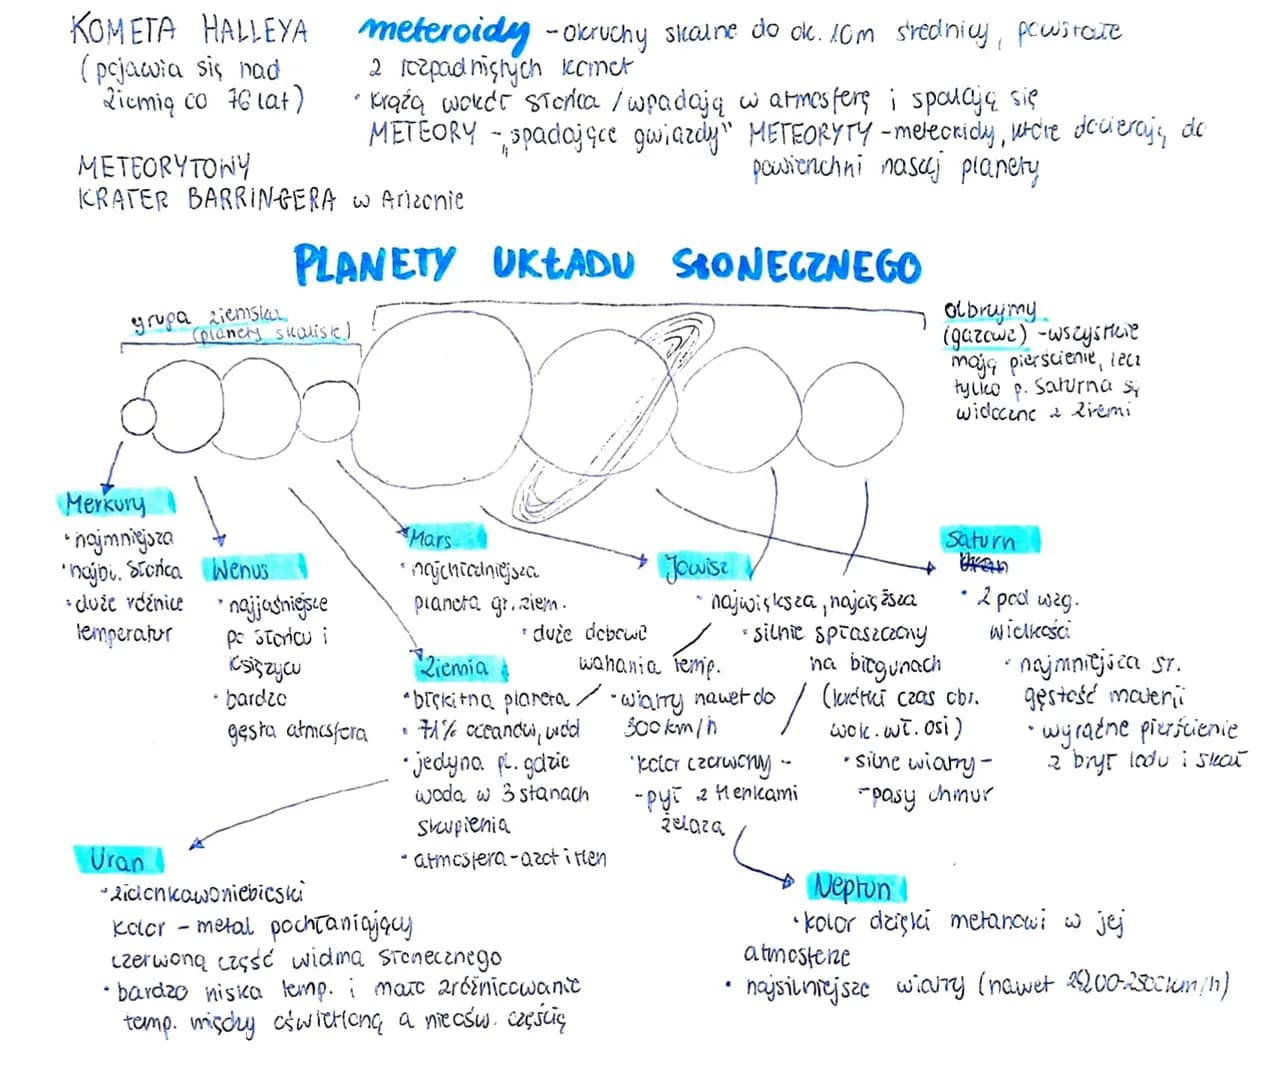 KOMETA HALLEYA
(pojawia się nad
Ziemią co 76 lat)
meteroidy - okruchy skalne do ok. 10m średnicy, powstałe
z rozpadniętych komet
• krążą wokół Słońca / wpadają w atmosferę i spalają się
METEORY - „spadające gwiazdy" METEORYTY - meteoroidy, które docierają do
powierzchni naszej planety
METEORYTOWY
KRATER BARRINGERA w Arizonie
PLANETY UKŁADU SŁONECZNEGO
grupa ziemska
(planety skaliste)
olbrzymy
(gazowe) - wszystkie
mają pierścienie, lecz
tylko p. Saturna są
widoczne z Ziemi
Merkury
• najmniejsza
• najbl. Słońca
• duże różnice
temperatur
Wenus
• najjaśniejsze
po Słońcu i
Księżycu
• bardzo
gęsta atmosfera
Mars
• najchłodniejsza
planeta gr. ziem.
• duże dobowe
wahania temp.
• wiatry nawet do
300 km/h
• kolor czerwony -
- pył z tlenkami
żelaza
Ziemia
• błękitna planeta
• 71% oceanów, wód
• jedyna pl. gdzie
woda w 3 stanach
skupienia
• atmosfera - azot i tlen
Jowisz
• największa, najcięższa
• silnie spłaszczony
na biegunach
(krótki czas obr.
wok. wł. osi)
• silne wiatry -
- pasy chmur
Saturn
Uran
• 2 pod wzg.
wielkości
• najmniejsza śr.
gęstość materii
• wyraźne pierścienie
z brył lodu i skał
Uran
• zielonkawoniebieski
kolor - metal pochłaniający
czerwoną część widma słonecznego
• bardzo niska temp. i małe zróżnicowanie
temp. między oświetloną a nieośw. częścią
Neptun
• kolor dzięki metanowi w jej
atmosferze
• najsilniejsze wiatry (nawet 2200-2500km/h)